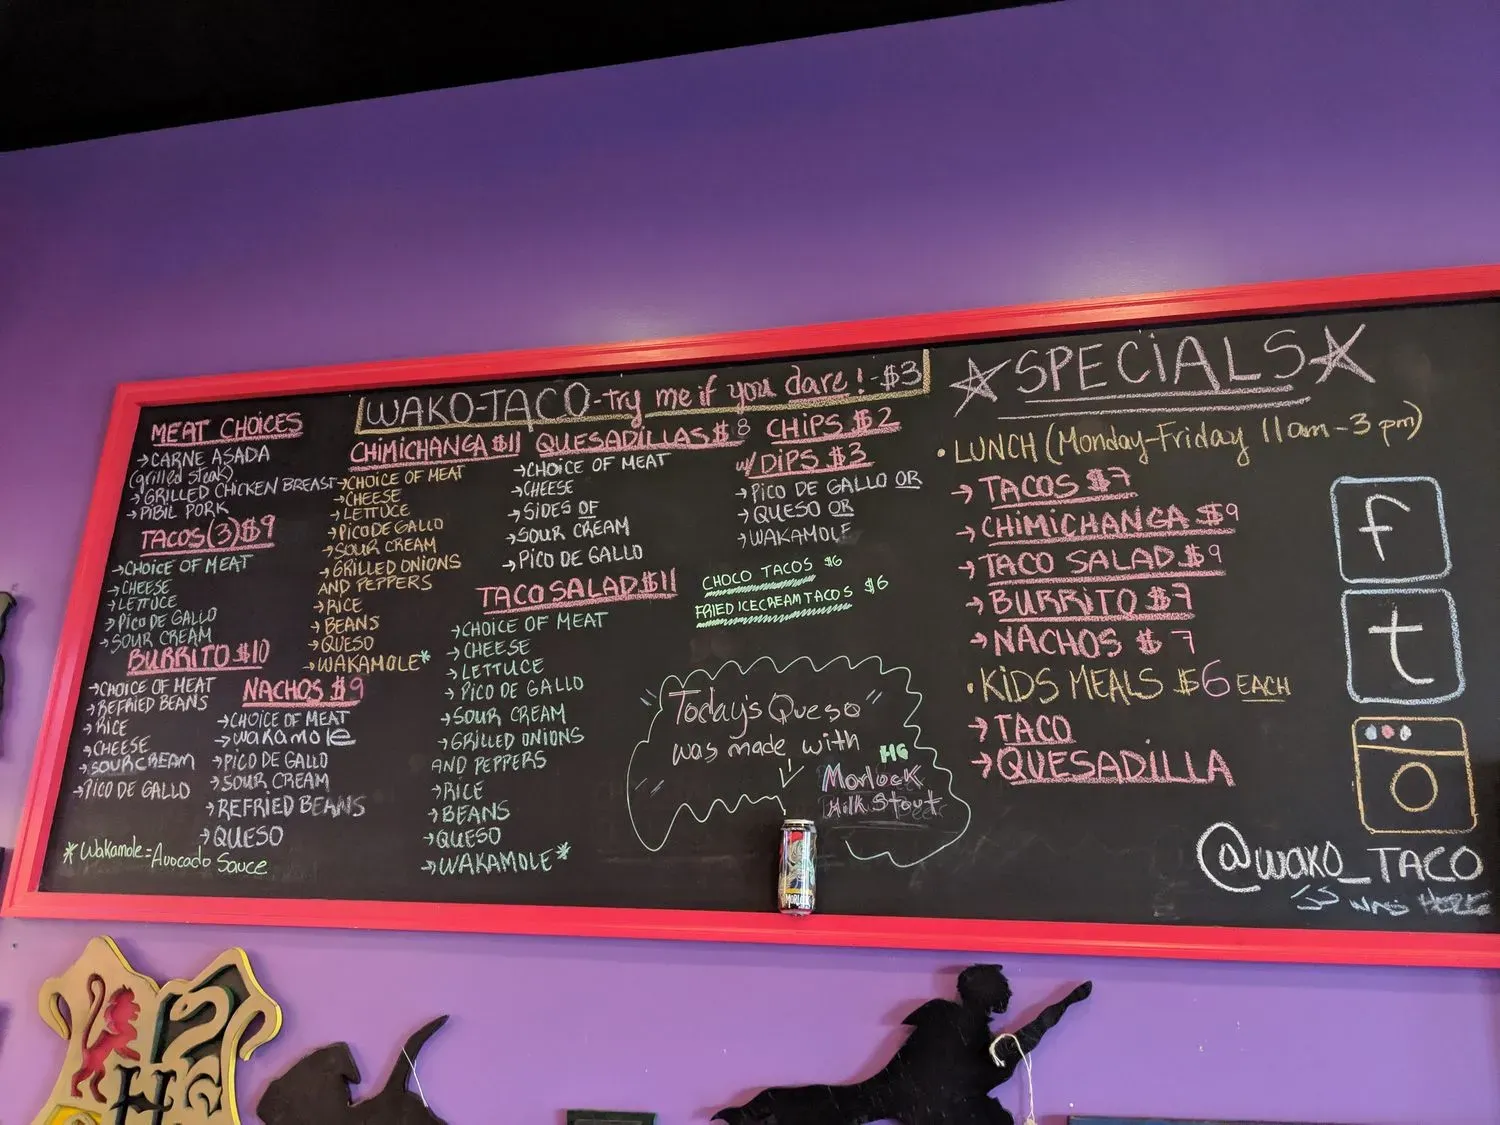 WAKO-TACO-try me if you dare!-$3
MEAT CHOICES
→CARNE ASADA
(grilled steak)
→GRILLED CHICKEN BREAST
→PIBIL PORK
TACOS(3)$9
→CHOICE OF MEAT
→CHEESE
→LETTUCE
→PICO DE GALLO
→SOUR CREAM
BURRITO $10
→CHOICE OF MEAT
→REFRIED BEANS
→RICE
→CHEESE
→SOUR CREAM
→PICO DE GALLO
*Wakamole=Avocado Sauce
NACHOS $9
→CHOICE OF MEAT
→wakamole
→PICO DE GALLO
→SOUR CREAM
→REFRIED BEANS
→QUESO
CHIMICHANGA $11
→CHOICE OF MEAT
→CHEESE
→LETTUCE
→PICO DE GALLO
→SOUR CREAM
→GRILLED ONIONS
AND PEPPERS
→RICE
→BEANS
→QUESO
→WAKAMOLE*
QUESADILLAS $8
→CHOICE OF MEAT
→CHEESE
→SIDES OF
→SOUR CREAM
→PICO DE GALLO
TACO SALAD $11
→CHOICE OF MEAT
→CHEESE
→LETTUCE
→PICO DE GALLO
→SOUR CREAM
→GRILLED ONIONS
AND PEPPERS
→RICE
→BEANS
→QUESO
→WAKAMOLE*
CHIPS $2
w/DIPS $3
→PICO DE GALLO OR
→QUESO OR
→WAKAMOLE
CHOCO TACOS $6
FRIED ICECREAM TACOS $6
Today's Queso
was made with
HG
Morlock
Milk Stout
MORLOCK
SPECIALS
•LUNCH (Monday-Friday 11am-3pm)
→TACOS $7
→CHIMICHANGA $9
→TACO SALAD $9
→BURRITO $7
→NACHOS $7
•KIDS MEALS $6 EACH
→TACO
→QUESADILLA
f
t
@WAKO_TACO
WAS HERE
H